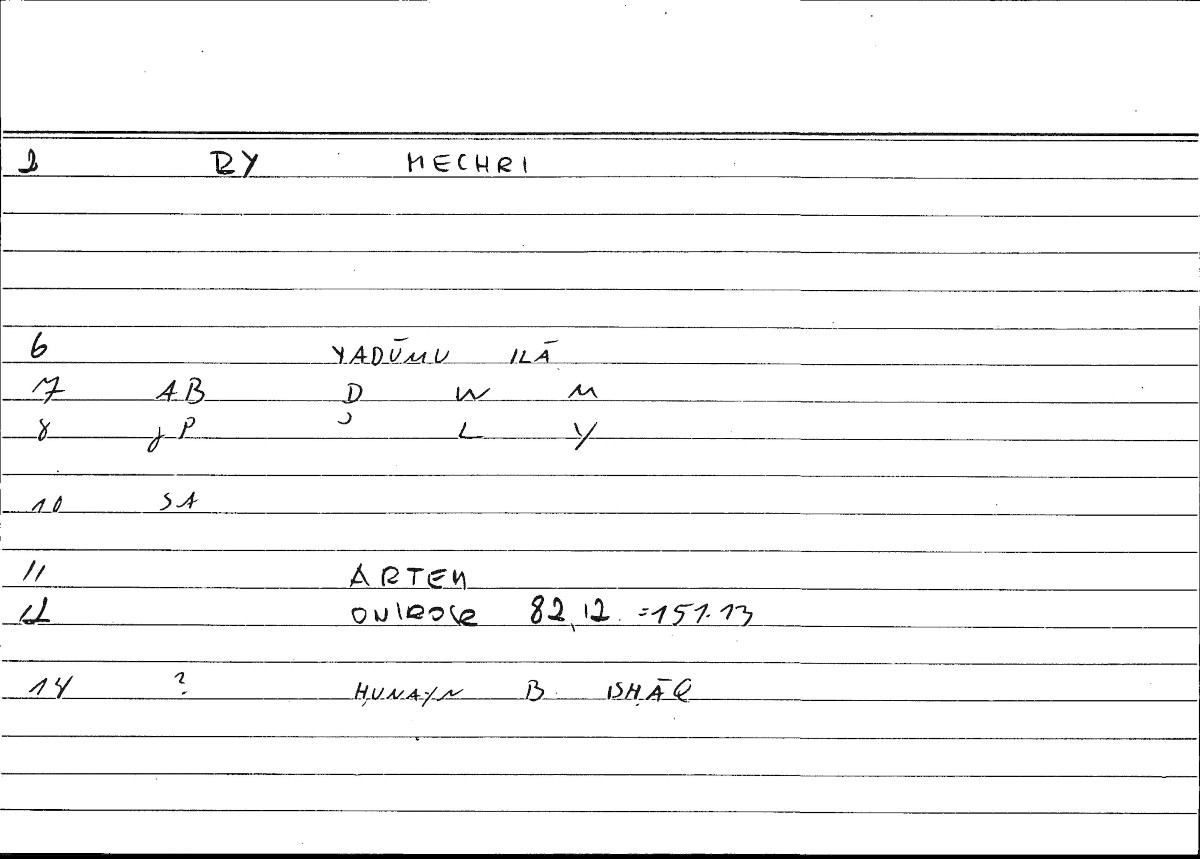 2 RY MECHRI
6 YADŪMU ILĀ
7 AB D W M
8 gP ʾ L Y
10 SA
11 ARTEM
12 ONIROCR 82,12 =151.13
14 ? ḤUNAYN B ISḤĀQ